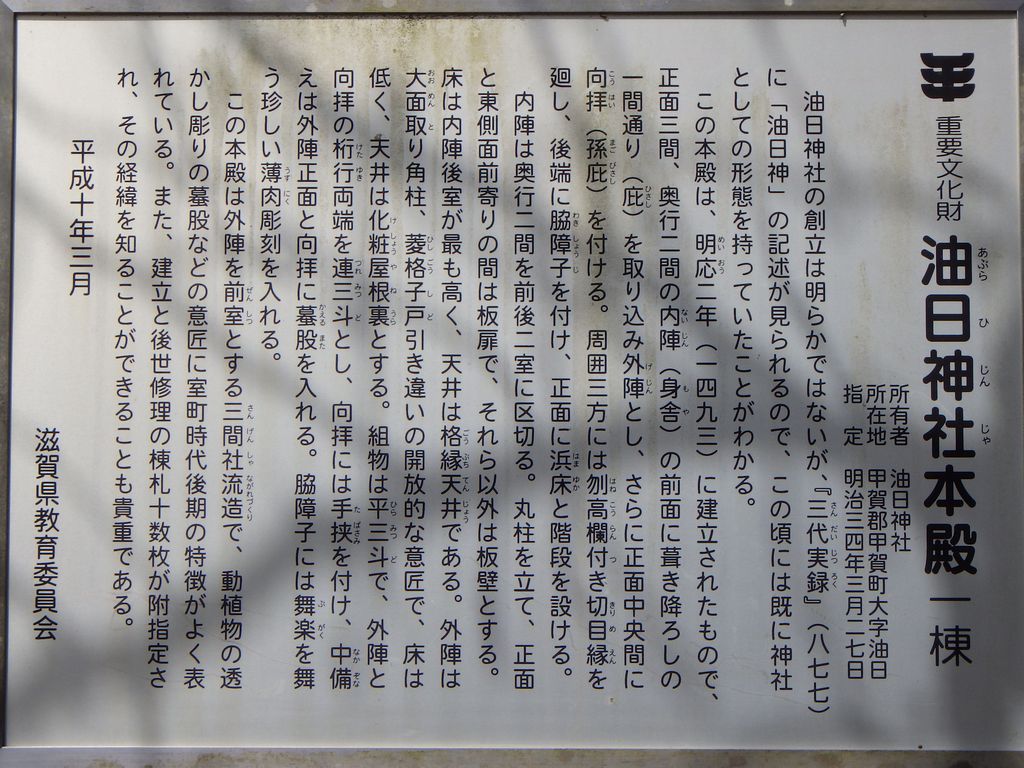 重要文化財 油日神社本殿 一棟
所有者 油日神社
所在地 甲賀郡甲賀町大字油日
指定 明治三四年三月二七日
油日神社の創立は明らかではないが、『三代実録』（八七七）
に「油日神」の記述が見られるので、この頃には既に神社
としての形態を持っていたことがわかる。
この本殿は、明応二年（一四九三）に建立されたもので、
正面三間、奥行二間の内陣（身舎）の前面に葺き降ろしの
一間通り（庇）を取り込み外陣とし、さらに正面中央間に
向拝（孫庇）を付ける。周囲三方には刎高欄付き切目縁を
廻し、後端に脇障子を付け、正面に浜床と階段を設ける。
内陣は奥行二間を前後二室に区切る。丸柱を立て、正面
と東側面前寄りの間は板扉で、それら以外は板壁とする。
床は内陣後室が最も高く、天井は格縁天井である。外陣は
大面取り角柱、菱格子戸引き違いの開放的な意匠で、床は
低く、天井は化粧屋根裏とする。組物は平三斗で、外陣と
向拝の桁行両端を連三斗とし、向拝には手挟を付け、中備
えは外陣正面と向拝に蟇股を入れる。脇障子には舞楽を舞
う珍しい薄肉彫刻を入れる。
この本殿は外陣を前室とする三間社流造で、動植物の透
かし彫りの蟇股などの意匠に室町時代後期の特徴がよく表
れている。また、建立と後世修理の棟札十数枚が附指定さ
れ、その経緯を知ることができることも貴重である。
平成十年三月
滋賀県教育委員会